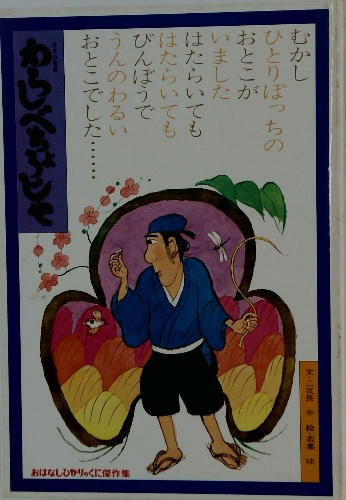 むかし
ひとりぼっちの
おとこが
いました
はたらいても
はたらいても
びんぼうで
うんのわるい
おとこでした……
わらしべちょうじゃ
おはなしひかりのくに傑作集